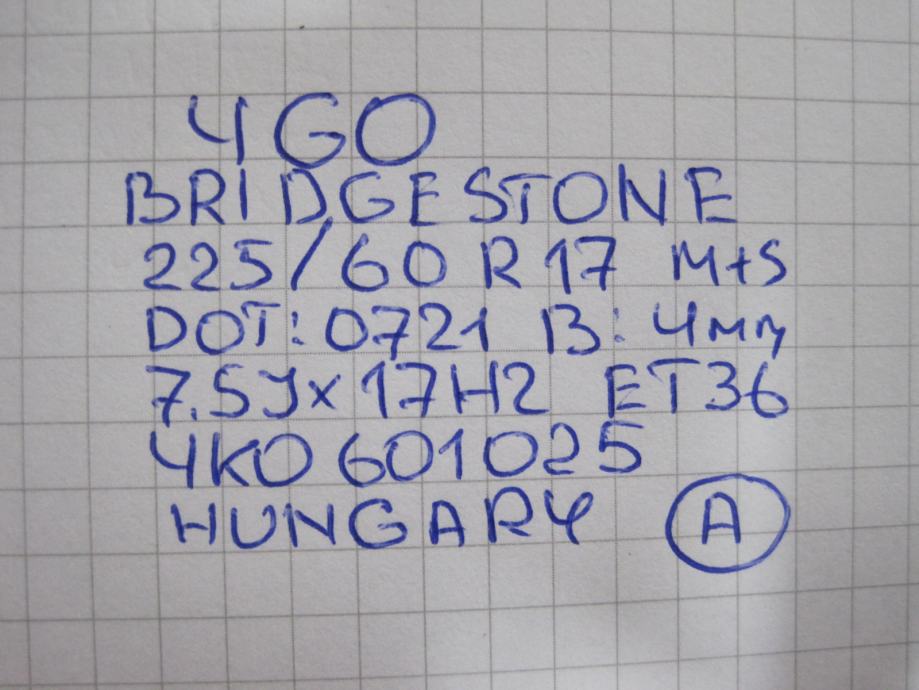 4GO
BRIDGESTONE
225/60 R 17 M+S
DOT: 0721 B: 4mm
7.5Jx17H2 ET36
4K0 601025
HUNGARY A